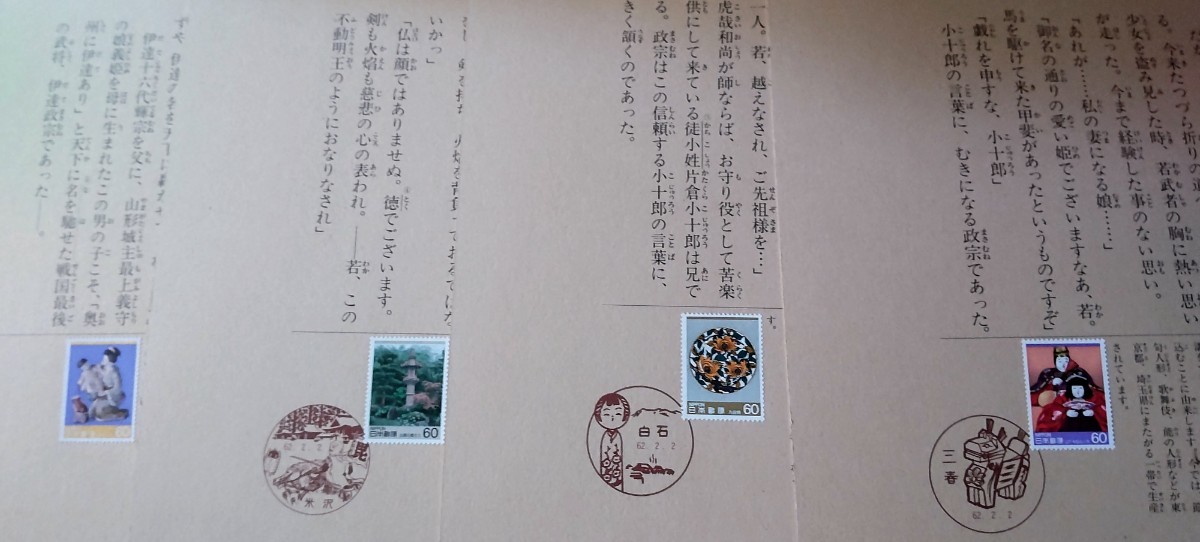 る。今来たつづら折りの道
少女を盗み見した時、若武者の胸に熱い思い
が走った。今まで経験した事のない思い。
「あれが……私の妻になる娘……」
「御名の通りの愛い姫でございますなあ、若。
馬を駆けて来た甲斐があったというものですぞ」
「戯れを申すな、小十郎」
小十郎の言葉に、むきになる政宗であった。
込むことに由来します
句人形、歌舞伎、能の人形などが東
京都、埼玉県にまたがる一帯で生産
されています。
NIPPON
日本郵便 60
三春
62.2.2
一人。若、越えなされ、ご先祖様を…」
虎哉和尚が師ならば、お守り役として苦楽
供にして来ている徒小姓片倉小十郎は兄で
る。政宗はこの信頼する小十郎の言葉に、
きく頷くのであった。
す。
NIPPON
日本郵便 60
白石
62.2.2
いかっ」
「仏は顔ではありませぬ。徳でございます。
剣も火焔も慈悲の心の表われ。――若、この
不動明王のようにおなりなされ」
NIPPON
日本郵便 60
62.2.2
米沢
伊達十六代輝宗を父に、山形城主最上義守
の娘義姫を母に生まれたこの男の子こそ、「奥
州に伊達あり」と天下に名を馳せた戦国最後
の武将、伊達政宗であった――。
60